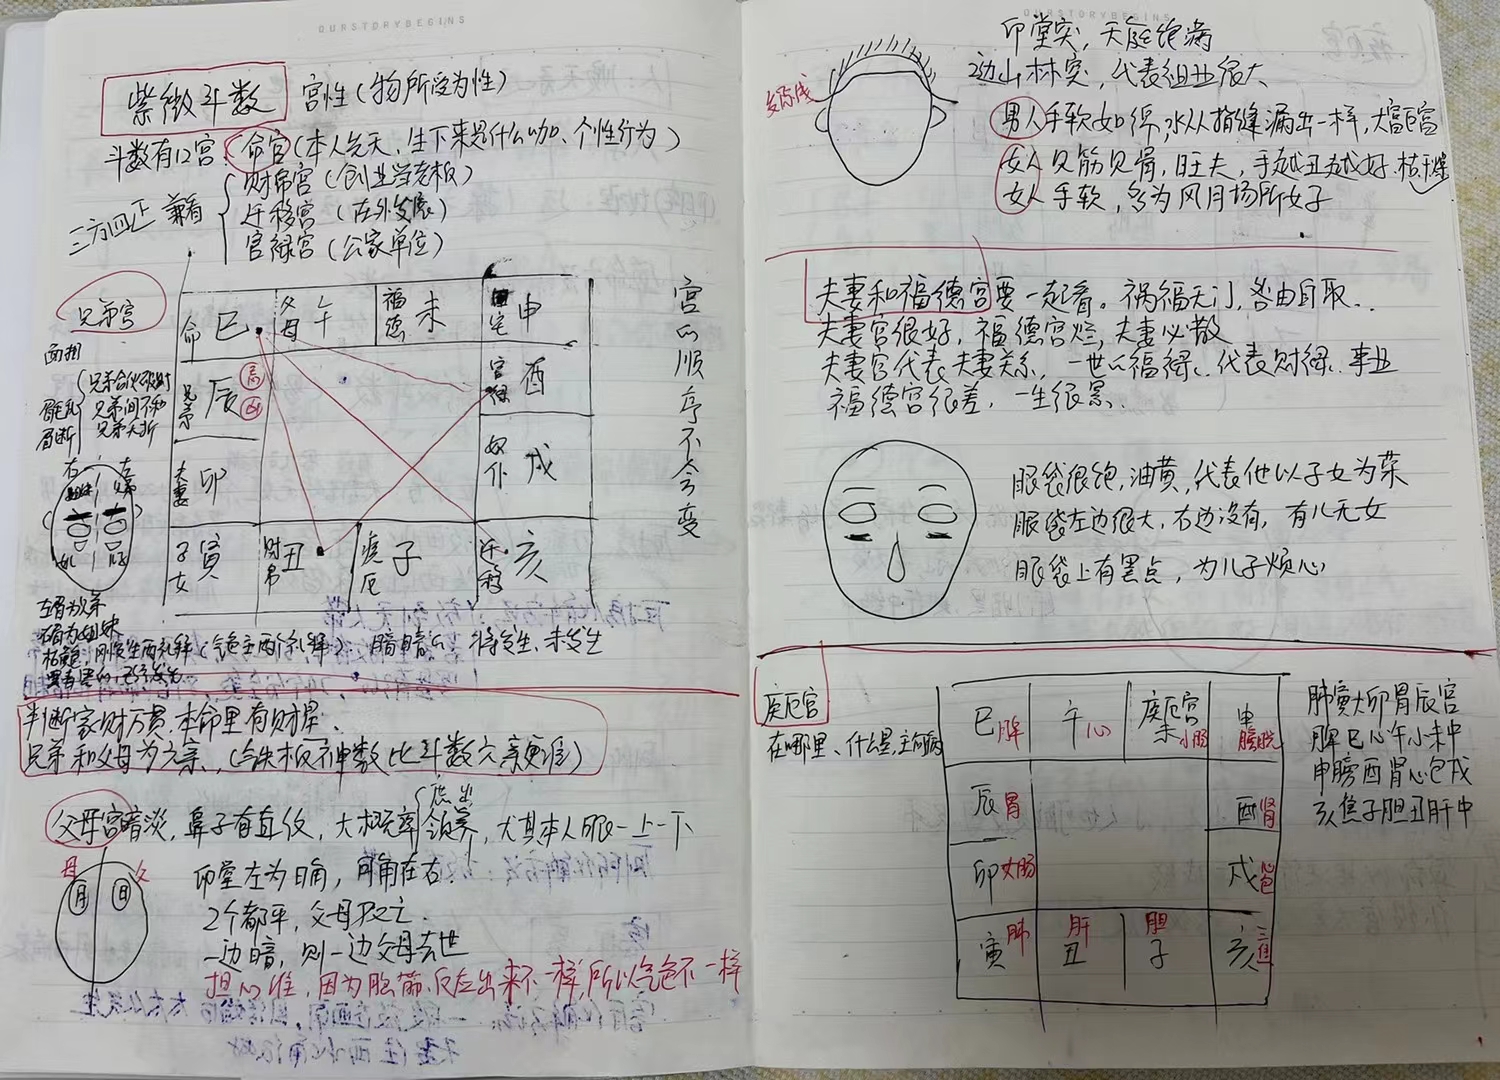 OURSTORYBEGINS
紫微斗数 宫性(物所受为性)
斗数有12宫:命宫(本人先天、生下来是什么咖、个性行为)
三方四正 兼看
财帛宫(创业学老板)
迁移宫(在外发展)
官禄宫(公家单位)
兄弟宫
命 巳
父母 午
福德 未
宅 申
兄弟 辰
酉
夫妻 卯
奴仆 戌
子女 寅
财帛 丑
疾厄 子
迁移 亥
宫的顺序不会变
面相
眉断
兄弟间不和
兄弟夭折
右 左
左眉为兄弟
右眉为姐妹
(气色主两个礼拜):暗暗的 将发生、未发生
判断家财万贯,本命里有财星、
兄弟和父母为六亲、(铁板神数比斗数六亲更准)
父母宫暗淡,鼻子有直纹,大概率
庶出
领养,尤其本人眼一上一下
母 父
月 日
印堂左为日角,月角在右、
2个都平,父母双亡、
一边暗,则一边父母去世
担心谁,因为脑筋反应出来不一样,所以气色不一样
OURSTORYBEGINS
印堂突,天庭饱满
2边山林突,代表祖业很大
发际线
男人手软如绵,水从指缝漏出一样,大富巨富
女人见筋见骨,旺夫,手越丑越好、枯干燥
女人手软,多为风月场所女子
夫妻和福德宫要一起看。祸福无门,咎由自取、
夫妻宫很好,福德宫烂,夫妻必散
夫妻宫代表夫妻关系,一世的福禄、代表财禄、事业
福德宫很差,一生很累、
眼袋很饱,油黄,代表他以子女为荣
眼袋左边很大,右边没有,有儿无女
眼袋上有黑点,为儿子烦心
疾厄宫
在哪里、什么星、主何病
巳 脾
午 心
疾厄宫 未 小肠
申 膀胱
辰 胃
酉 肾
卯 大肠
戌 心包
寅 肺
丑 肝
子 胆
亥 三焦
肺寅大卯胃辰宫
脾巳心午小未中
申膀酉肾心包戌
亥焦子胆丑肝中